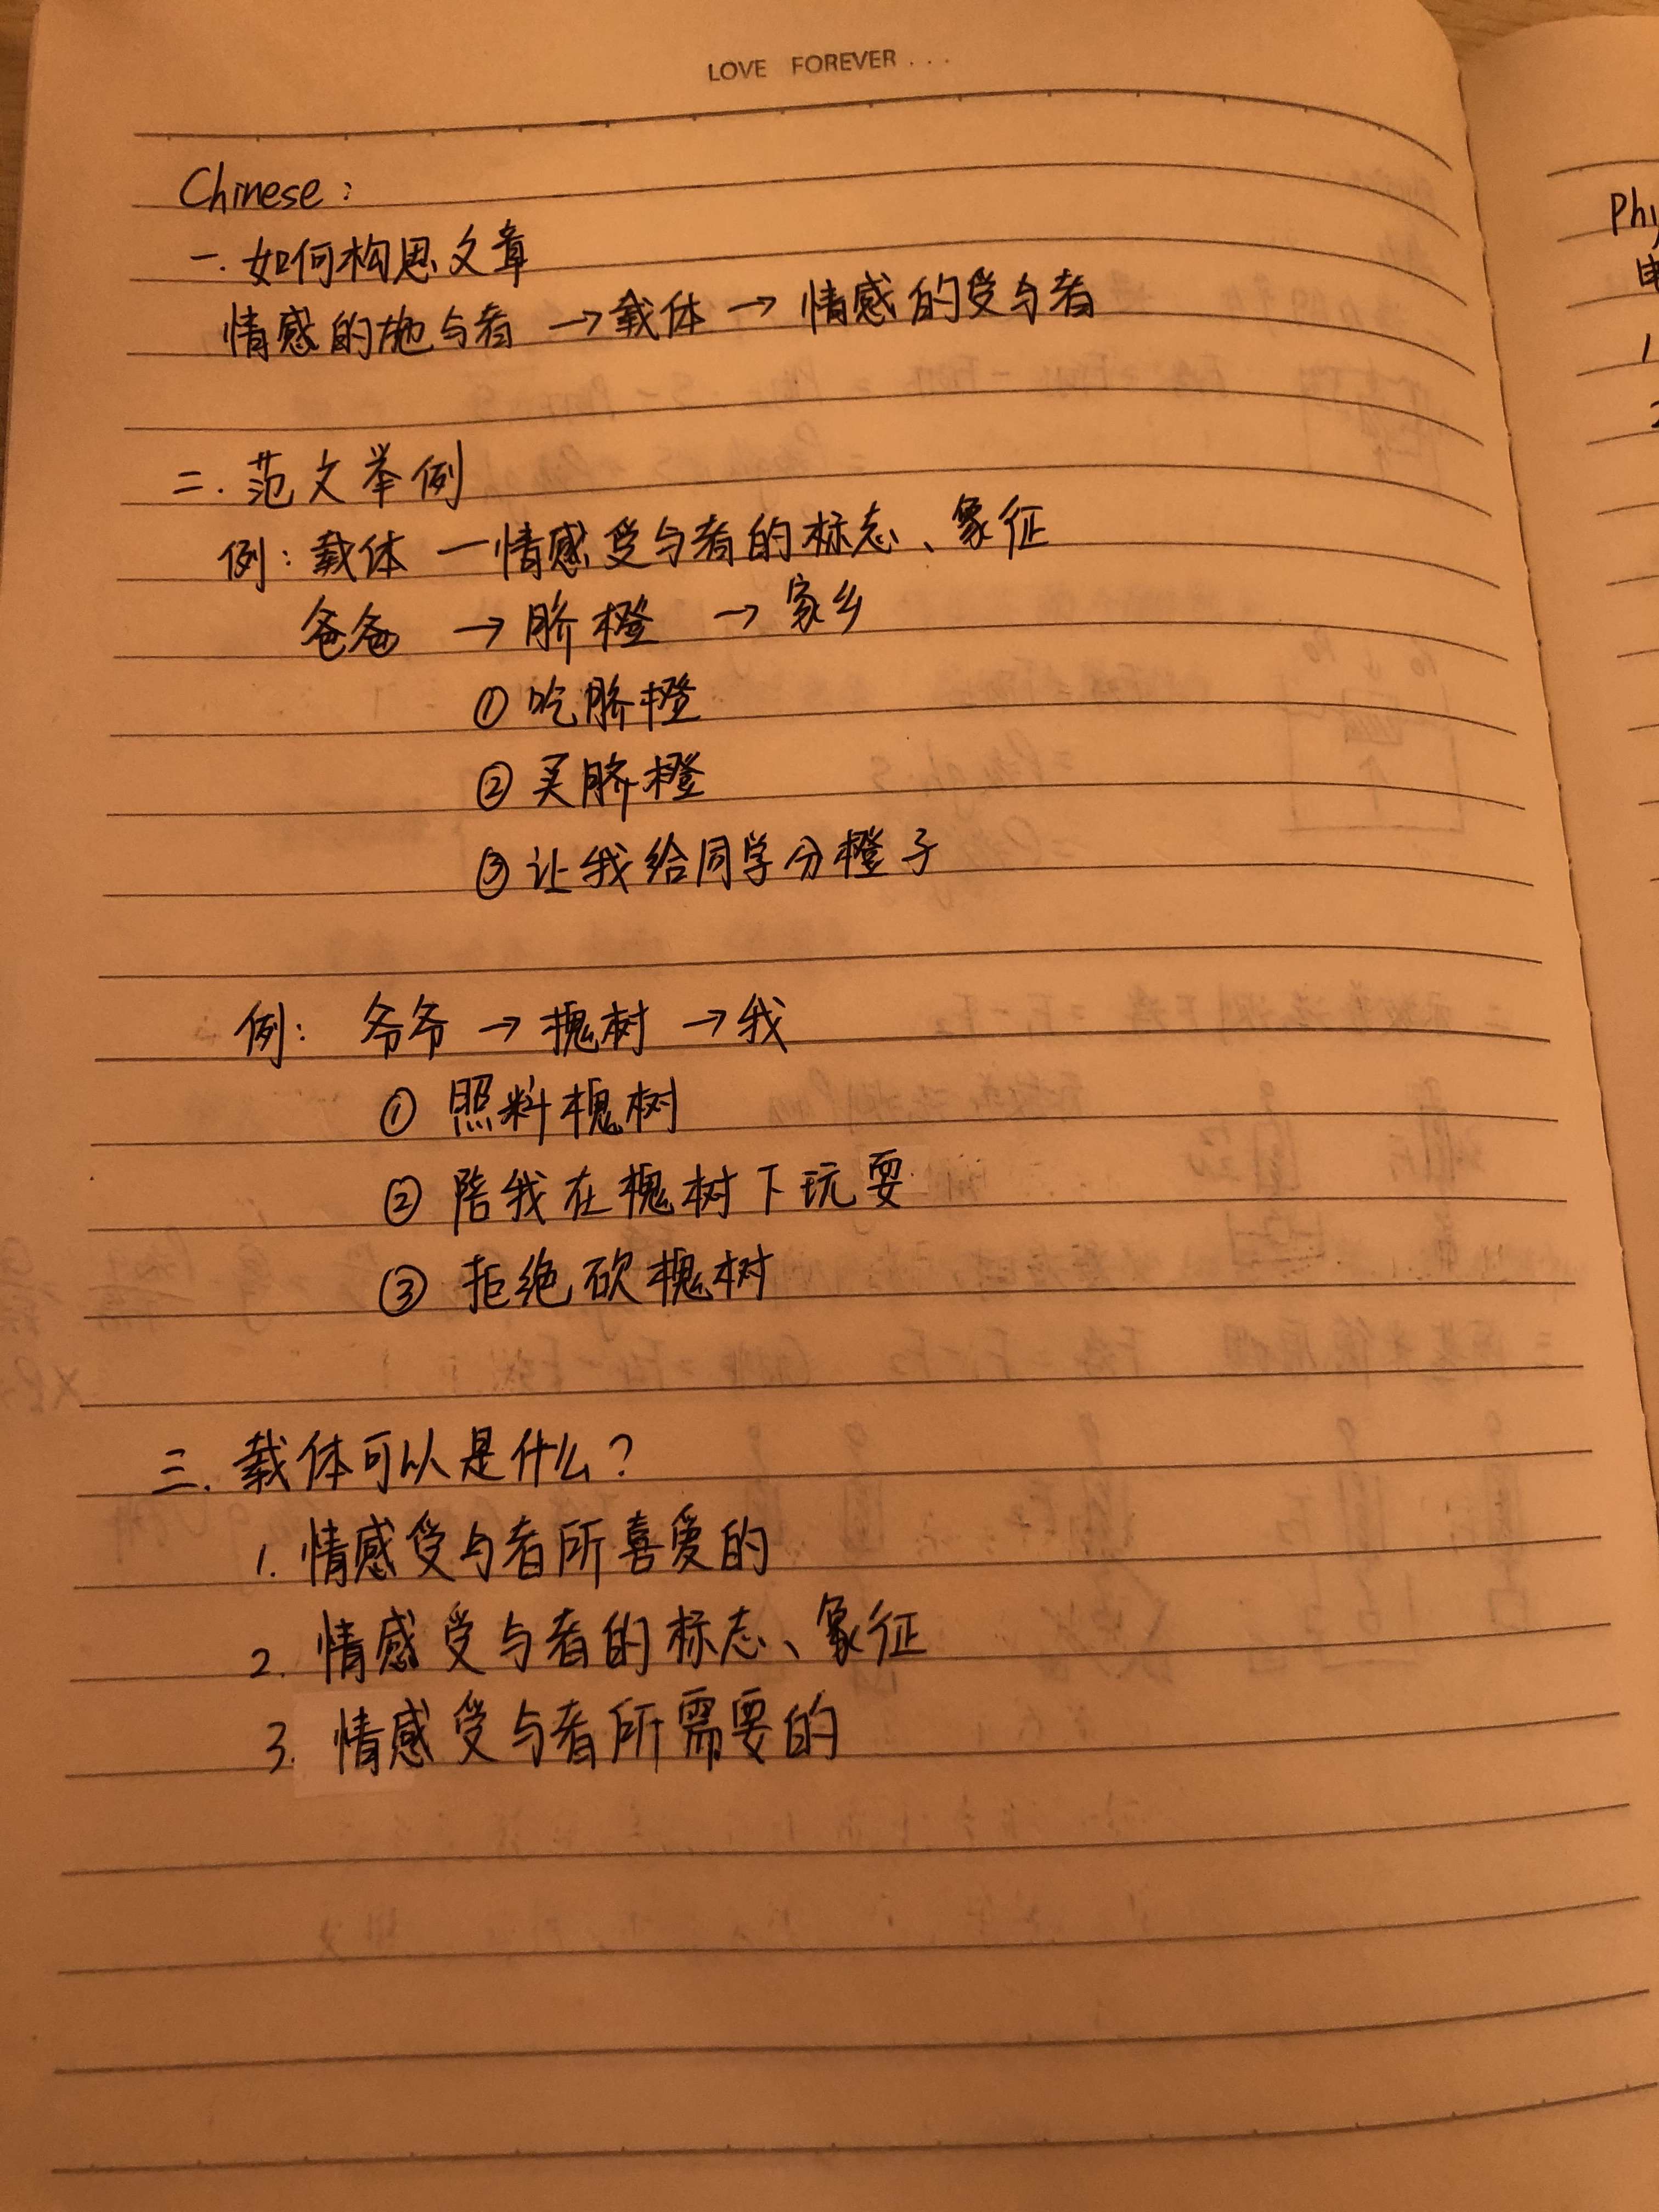 LOVE FOREVER...
Chinese:
一. 如何构思文章
情感的施与者 → 载体 → 情感的受与者
二. 范文举例
例: 载体 — 情感受与者的标志、象征
爸爸 → 脐橙 → 家乡
① 吃脐橙
② 买脐橙
③ 让我给同学分橙子
例: 爷爷 → 槐树 → 我
① 照料槐树
② 陪我在槐树下玩耍
③ 拒绝砍槐树
三. 载体可以是什么?
1. 情感受与者所喜爱的
2. 情感受与者的标志、象征
3. 情感受与者所需要的
Phy
1
2